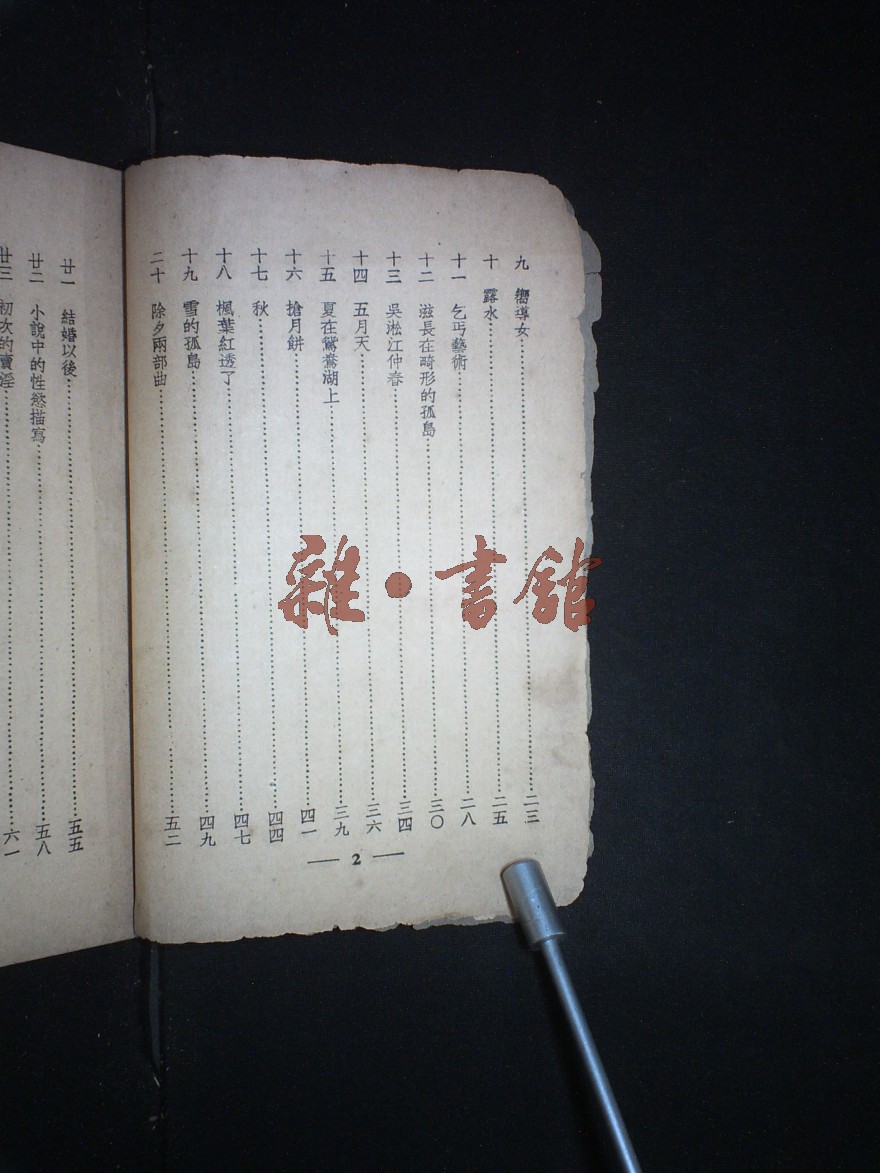 九 嚮導女 二三
十 露水 二五
十一 乞丐藝術 二八
十二 滋長在畸形的孤島 三〇
十三 吳淞江仲春 三四
十四 五月天 三六
十五 夏在鴛鴦湖上 三九
十六 搶月餅 四一
十七 秋 四四
十八 楓葉紅透了 四七
十九 雪的孤島 四九
二十 除夕兩部曲 五二
2
廿一 結婚以後 五五
廿二 小說中的性慾描寫 五八
廿三 初次的賣淫 六一
雜·書館